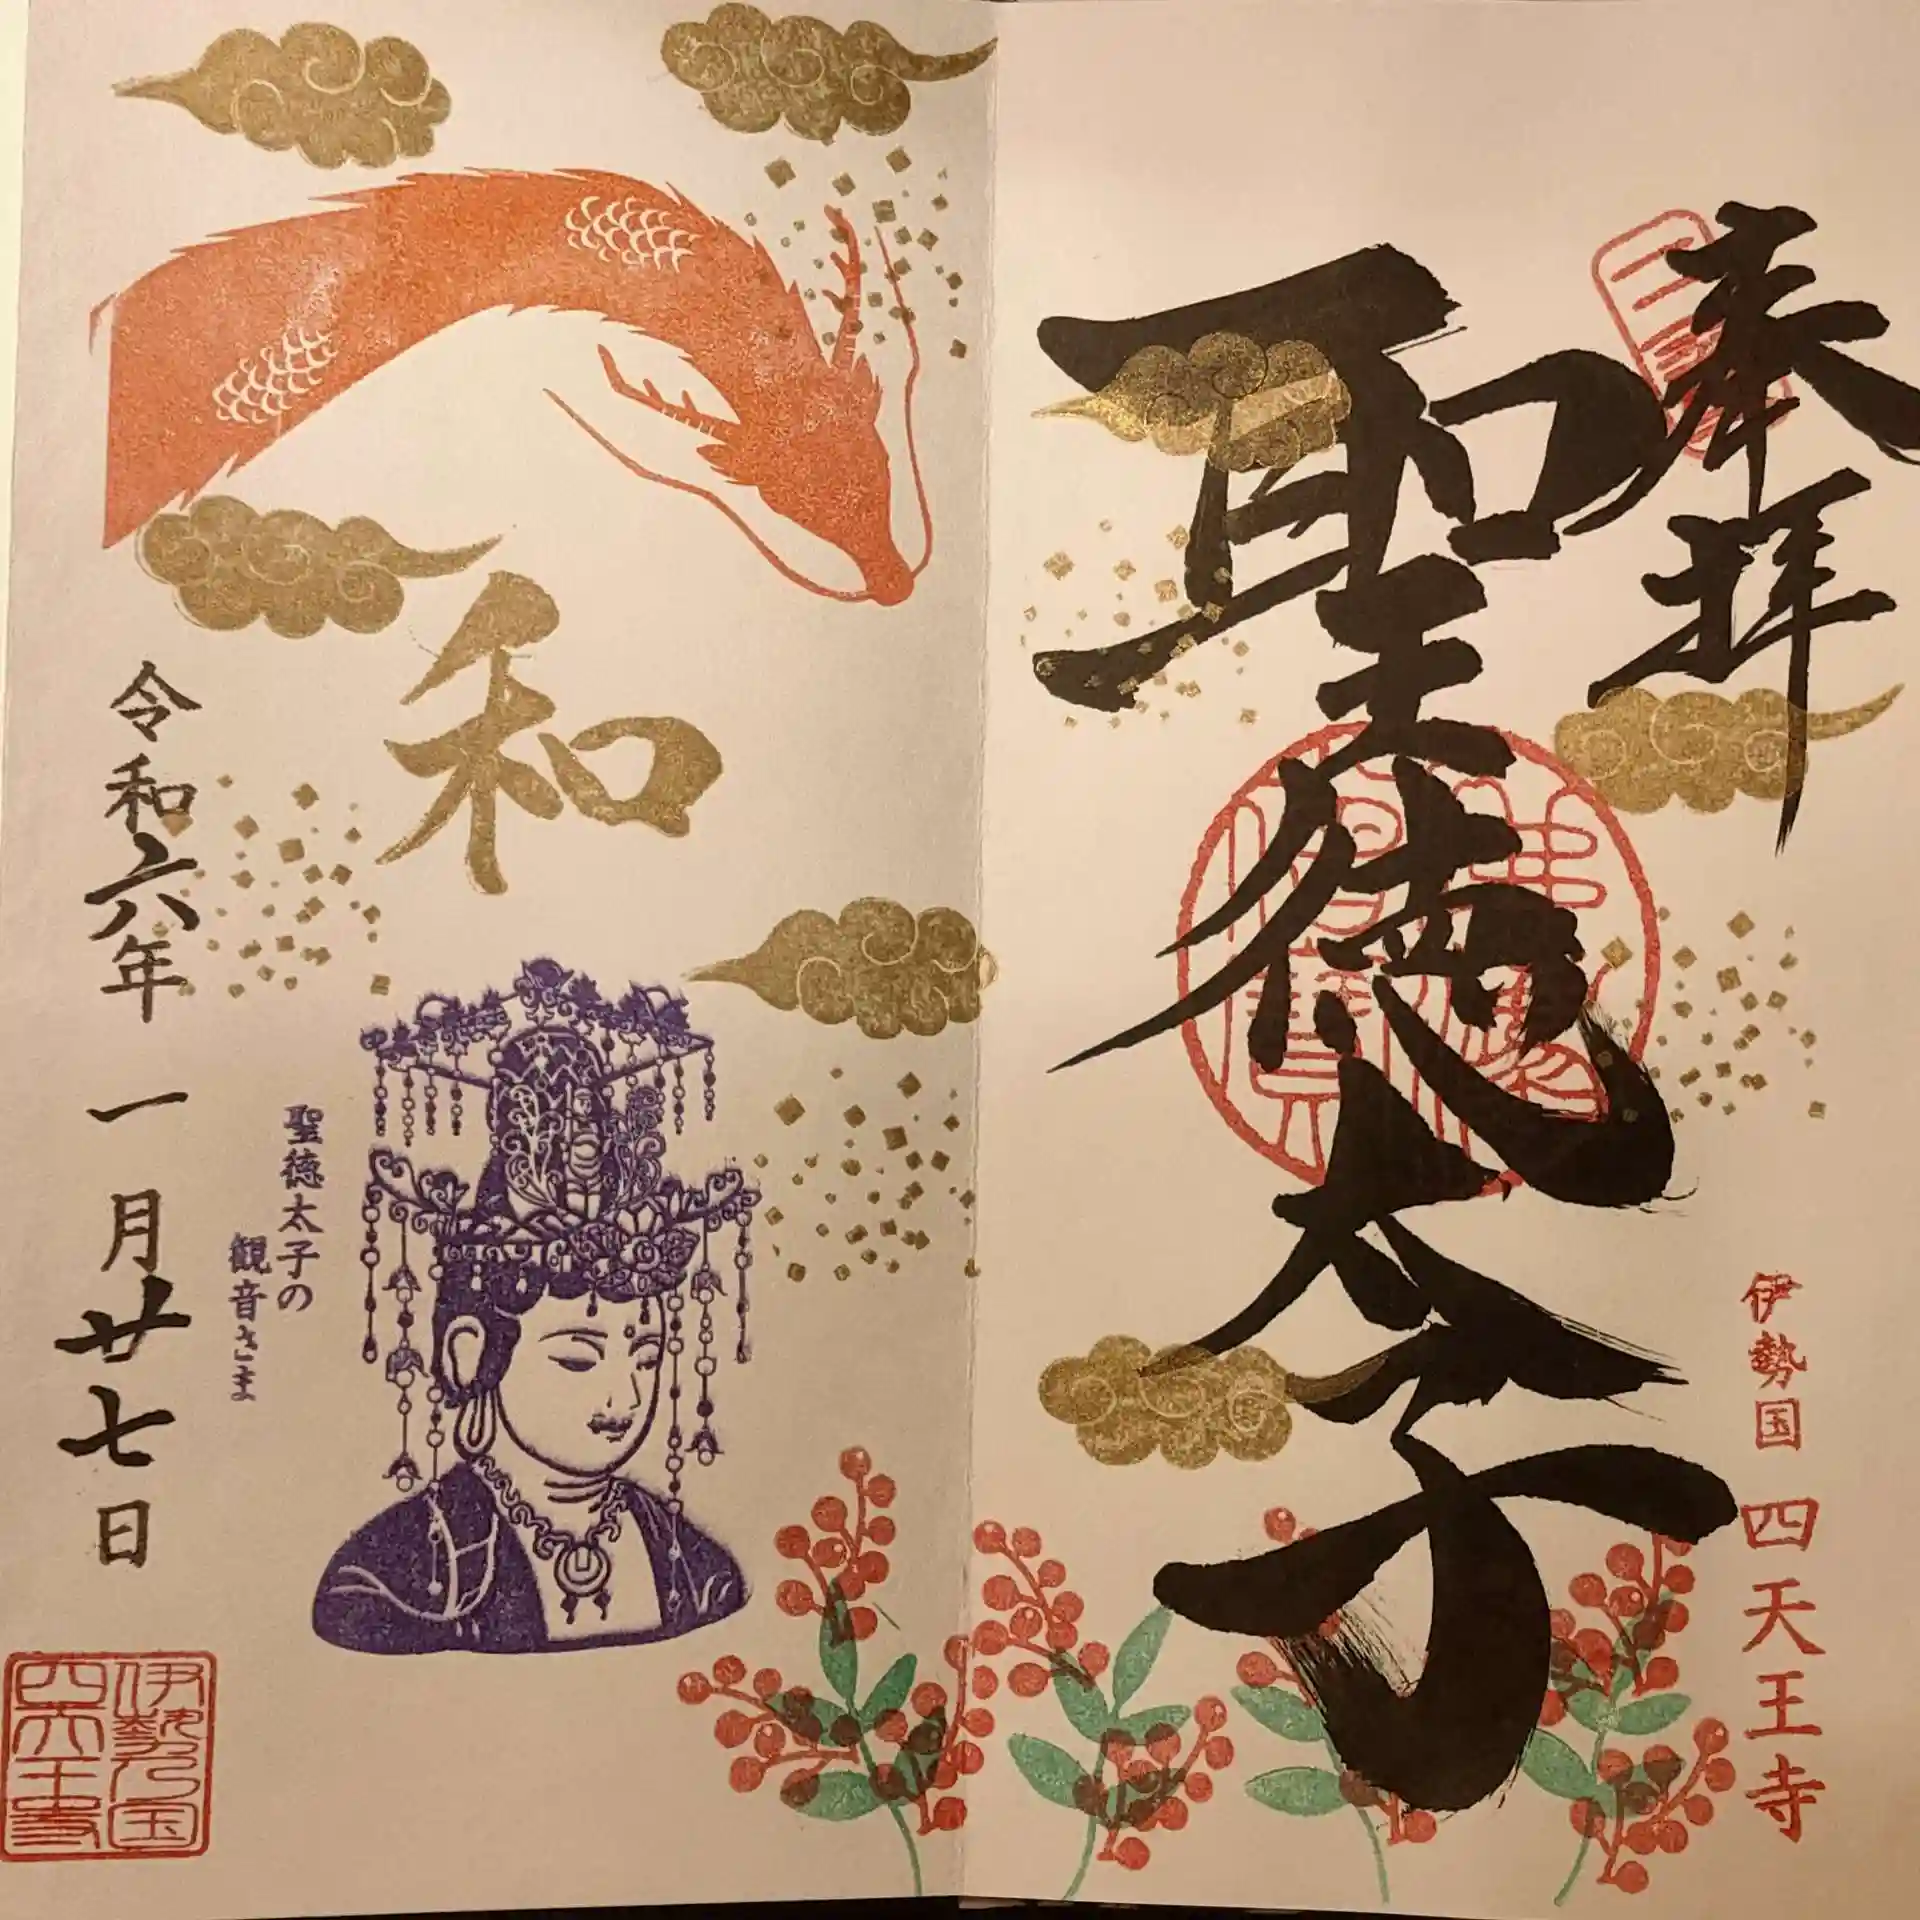 奉拝
聖徳太子
伊勢国 四天王寺
和
聖徳太子の
観音さま
令和六年 一月廿七日
伊勢乃国
四天王寺